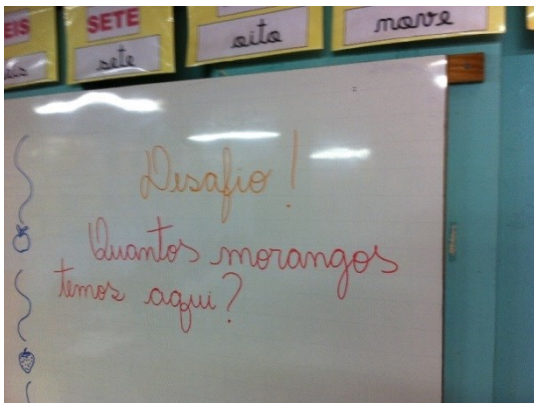 EIS SETE
seis sete oito nove
Desafio!
Quantos morangos
temos aqui?